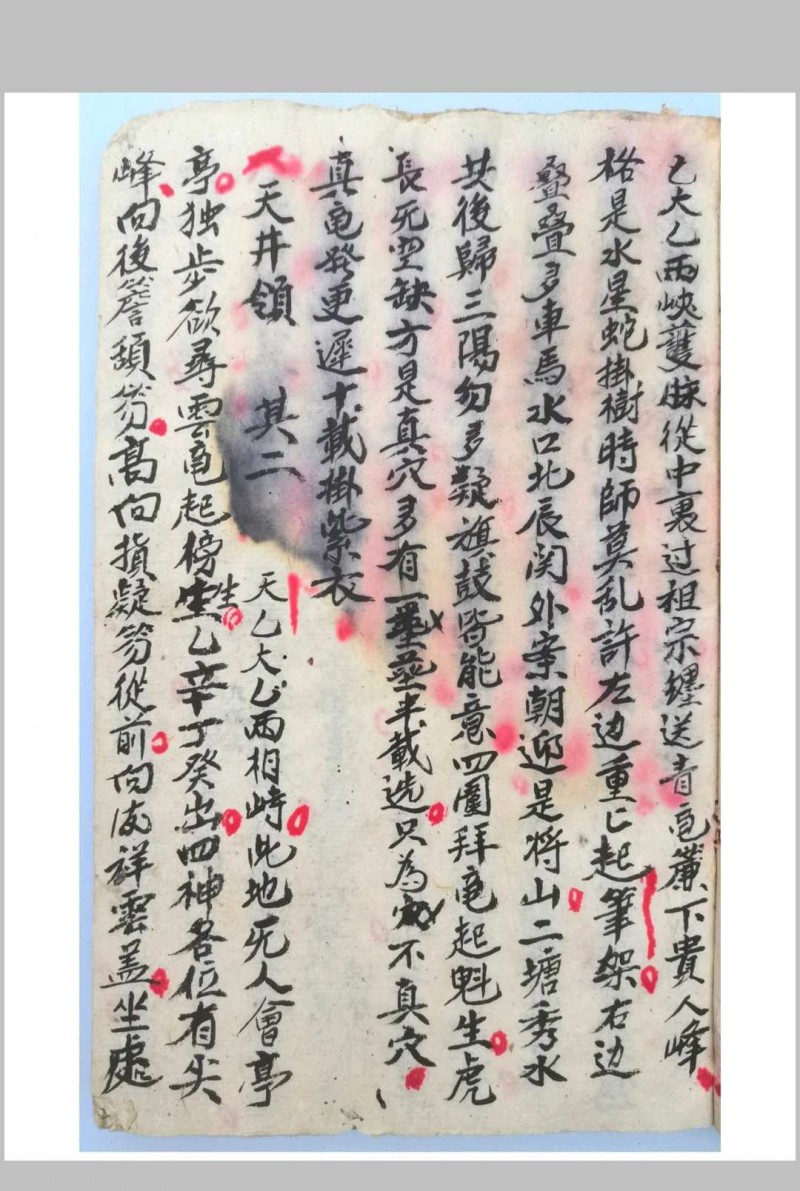 乙太乙両峽護脉從中裏过祖宗纏送青龟簾下貴人峰
格是水星蛇掛樹時師莫乱許左边重〻起筆架右边
叠叠多車馬水口北辰関外案朝迎是将山二塘秀水
共後歸三陽勿多疑旗鼓皆能意四圍拜龟起魁生虎
長死空缺方是真穴多有一葬半載选只為不真穴
真龟發更遲十載掛紫衣
天井領 其二
天乙太乙両相峙此地死人會亭
亭独步欲尋雲龟起傍生乙辛丁癸出四神各位有尖
峰向後簷額笏高向損疑笏從前向後祥雲盖坐處